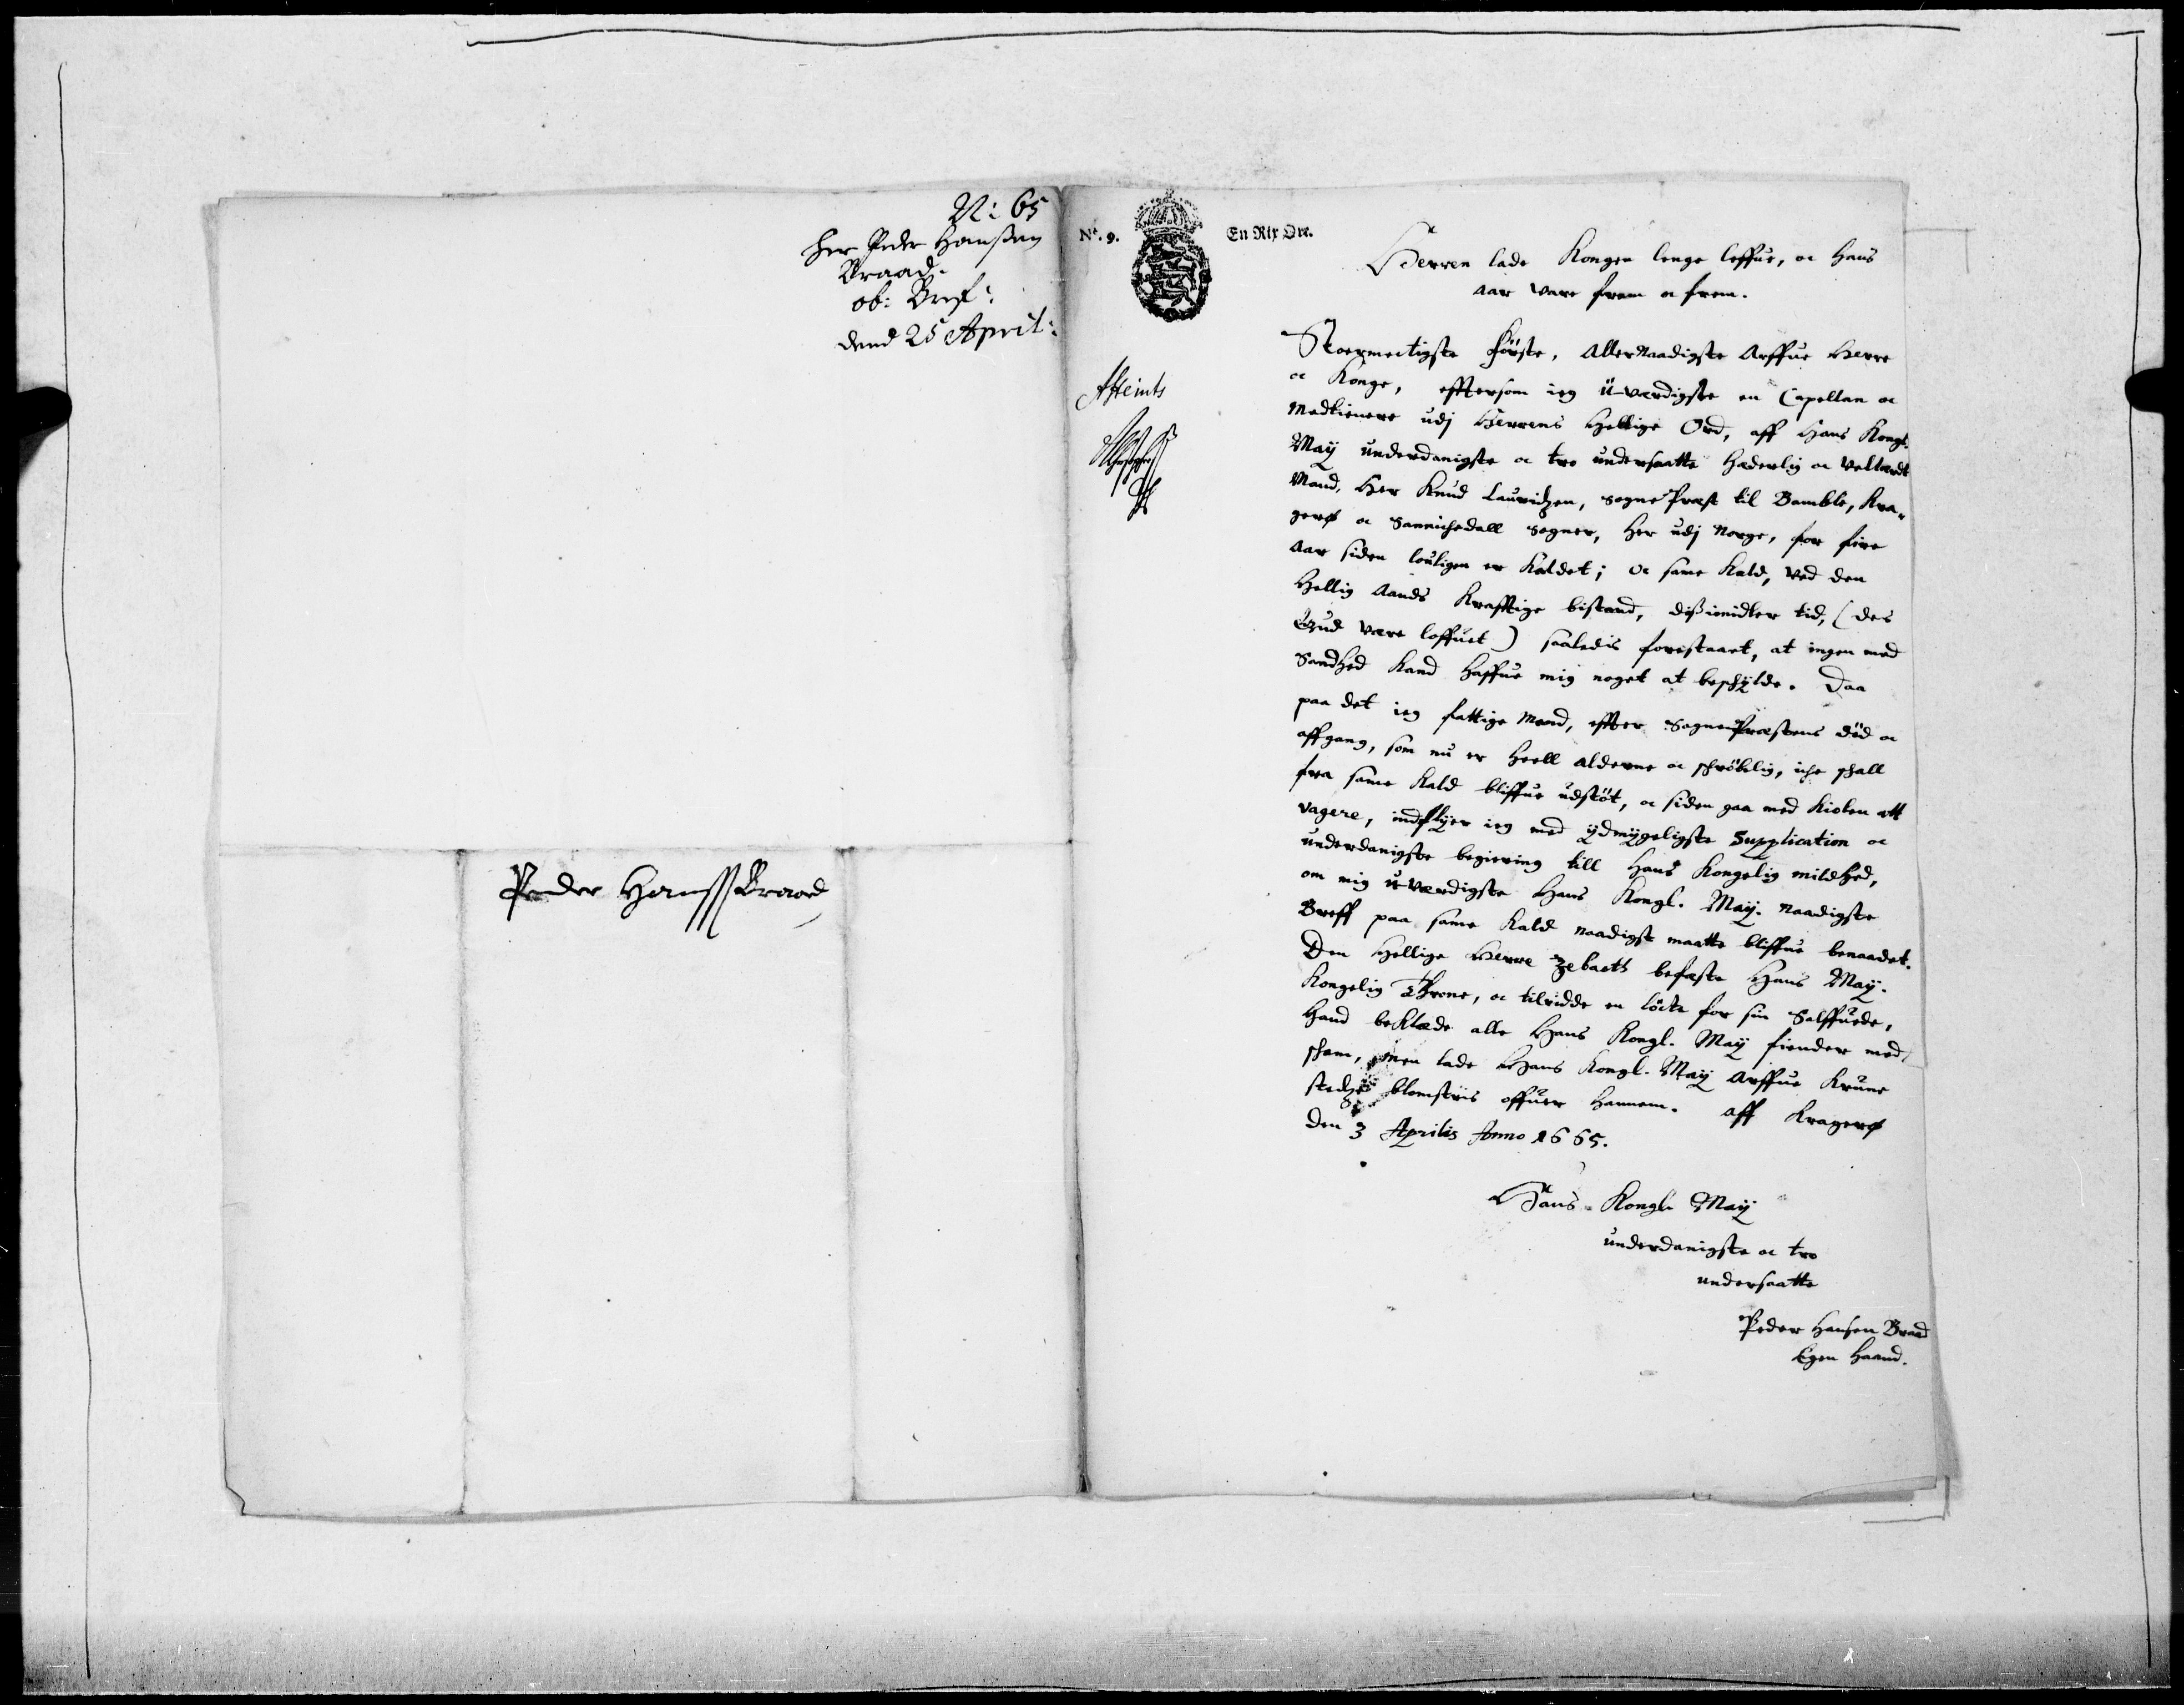 N: 65
Her Peder Hanßen
Braad.
ob: Bref:
dend 25 April:
Peder Hanss Braad
Nr. 9.
En Rix Ort.
Herren lade Kongen lenge leffue, oc Hans
aar vare frem oc frem.
Stoermectigste Förste, AllerNaadigste Arffue Herre
oc Konge, efftersom ieg ü-værdigste en Capellan oc
Medtienere udj Herrens Hellige Ord, aff Hans Kongl.
Maÿ underdanigste oc tro undersaatte Hæderlig oc Vellærdt
Mand, Her Knud Lauridzen, SognePræst til Bamble, Kra-
gerø oc Sannichedall Sogner, Her udj Norge, for fire
Aar siden louligen er Kaldet; Oc same Kald, Ved den
Hellig Aands Krafftige bistand, dißimidler tid, (des
Gud være loffuet) saaledis forestaaet, at ingen med
Sandhed Kand Haffue mig noget at beschÿlde. Daa
paa det ieg fattige Mand, effter SognePræstens död oc
affgang, som nu er Heell alderne oc schröbelig, iche schall
fra same Kald bliffue udstöt, oc siden gaa med Kiolen att
vagere, indflÿer ieg med ÿdmÿgeligste Supplication oc
underdanigste begiering till Hans Kongelig mildhed,
om mig ü-værdigste Hans Kongl. Maÿ. Naadigste
Breff paa same Kald naadigst maatte bliffue benaadet.
Den Hellige Herre Zebaeth befæste Hans Maÿ.
Kongelig Throne, oc tilridde en löcte for sin Salffuede,
Hand beklæde alle Hans Kongl. Maÿ fiender med
scham, men lade Hans Kongl. Maÿ Arffue Krune
stedze blomstris offuer Hannem. Aff Kragerø
den 3 Aprilis Anno 1665.
Hans Kongl. Maÿ
underdanigste oc tro
undersaatte
Peder Hansen Braad
Egen Haand.